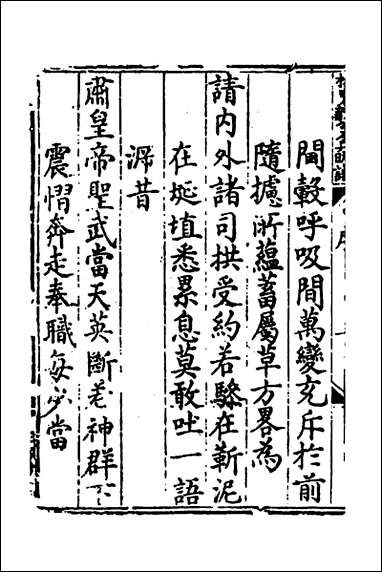 閫轂呼吸間萬變充斥於前
隨攄所蘊蓄屬草方畧為
請內外諸司拱受約若驂在靳泥
在埏埴悉累息莫敢吐一語
溯昔
肅皇帝聖武當天英斷若神群下
震慴奔走奉職每必當